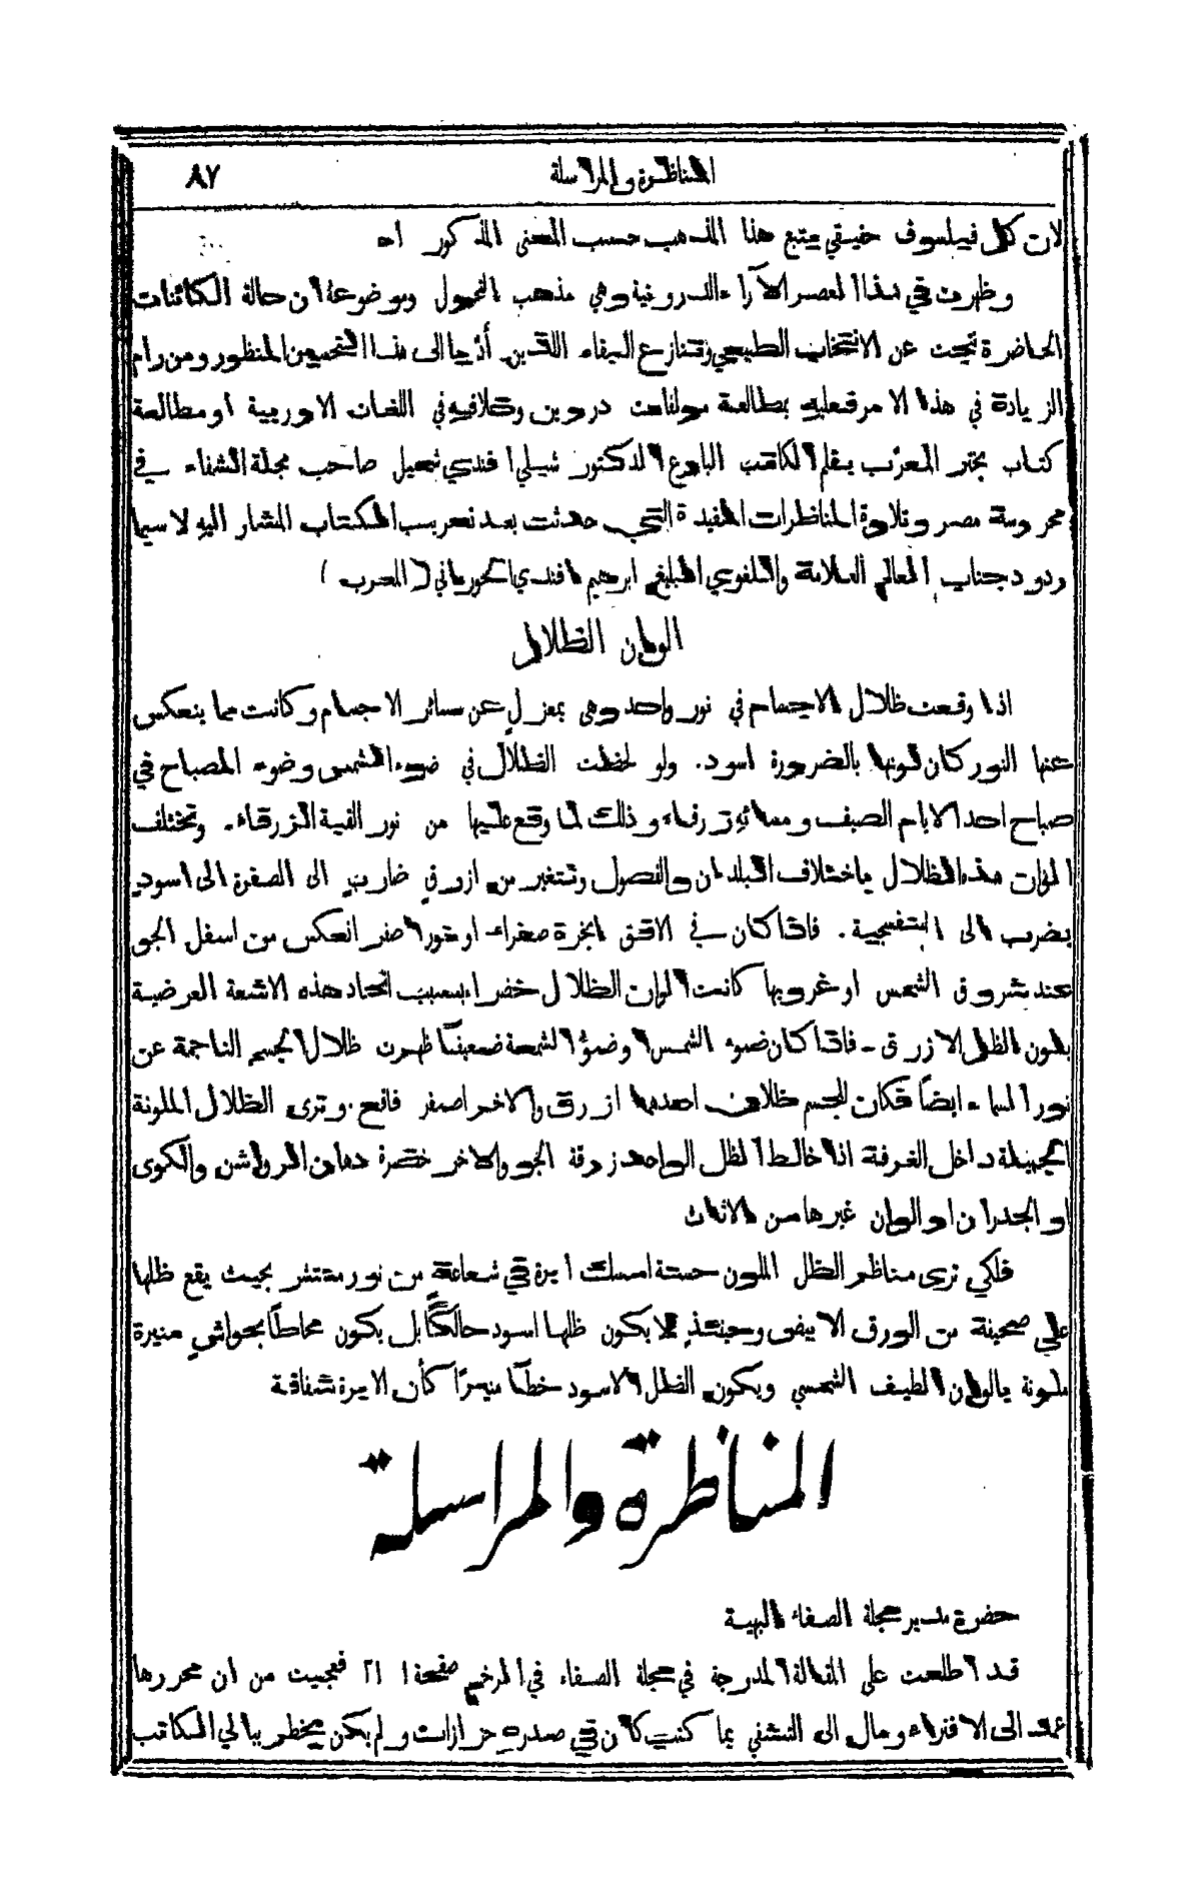 المناظرة والمراسلة ٨٧
لان كل فيلسوف حقيقي يتبع هذا المذهب حسب المعنى المذكور اه
وظهرت في هذا العصر الآراء الدروينية وهي مذهب التحول وموضوعه ان حالة الكائنات
الحاضرة نتجت عن الانتخاب الطبيعي وتنازع البقاء اللذين أديا الى هذا التحسين المنظور ومن رام
الزيادة في هذا الامر فعليه بمطالعة مولفات دروين وخلافه في اللغات الاوربية او مطالعة
كتاب بخنر المعرّب بقلم الكاتب البارع الدكتور شبلي افندي شميل صاحب مجلة الشفاء في
محروسة مصر وتلاوة المناظرات المفيدة التي حدثت بعد تعريب الكتاب المشار اليه لا سيما
ردود جناب العالم العلامة واللغوي البليغ ابرهيم افندي الحوراني ( المعرب )
الوان الظلال
اذا وقعت ظلال الاجسام في نور واحد وهي بمعزلٍ عن سائر الاجسام وكانت مما ينعكس
عنها النور كان لونها بالضرورة اسود. ولو لحظت الظلال في ضوء الشمس وضوء المصباح في
صباح احد الايام الصيف ومسائهِ زرقاء وذلك لما وقع عليها من نور القبة الزرقاء. وتختلف
الوان هذه الظلال باختلاف البلدان والفصول وتتغير من ازرق ضارب الى الصفرة الى اسود
يضرب الى البنفسجية. فاذا كان في الافق ابخرة صفراء او نور اصفر انعكس من اسفل الجو
عند شروق الشمس او غروبها كانت الوان الظلال خضراء بسبب اتحاد هذه الاشعة العرضية
بلون الظل الازرق - فاذا كان ضوء الشمس او ضوء الشمعة ضعيفاً ظهرت ظلال الجسم الناجمة عن
نور السماء ايضاً فكان للجسم ظلان احدهما ازرق والاخر اصفر فاقع. وترى الظلال الملونة
الجميلة داخل الغرفة اذا خالط الظل الواحد زرقة الجو والاخر خضرة دهان الرواشن والكوى
او الجدران او الوان غيرها من الاثاث
فلكي ترى مناظر الظل الملون حسنة امسك ابرة في شعاعة من نور منتشر بحيث يقع ظلها
على صحيفة من الورق الابيض وحينئذٍ لا يكون ظلها اسود حالكاً بل يكون محاطاً بحواشٍ منيرة
ملونة بالوان الطيف الشمسي ويكون الظل الاسود خطاً منيراً كأن الابرة شفافة
المناظرة والمراسلة
حضرة مدير مجلة الصفاء البهية
قد اطلعت على المقالة المدرجة في مجلة الصفاء في المرخم صفحة ٢١ فعجبت من ان محررها
عمد الى الافتراء ومال الى التشفي بما كنت كان في صدره حزازات ولم يكن يخطر ببالي الكاتب